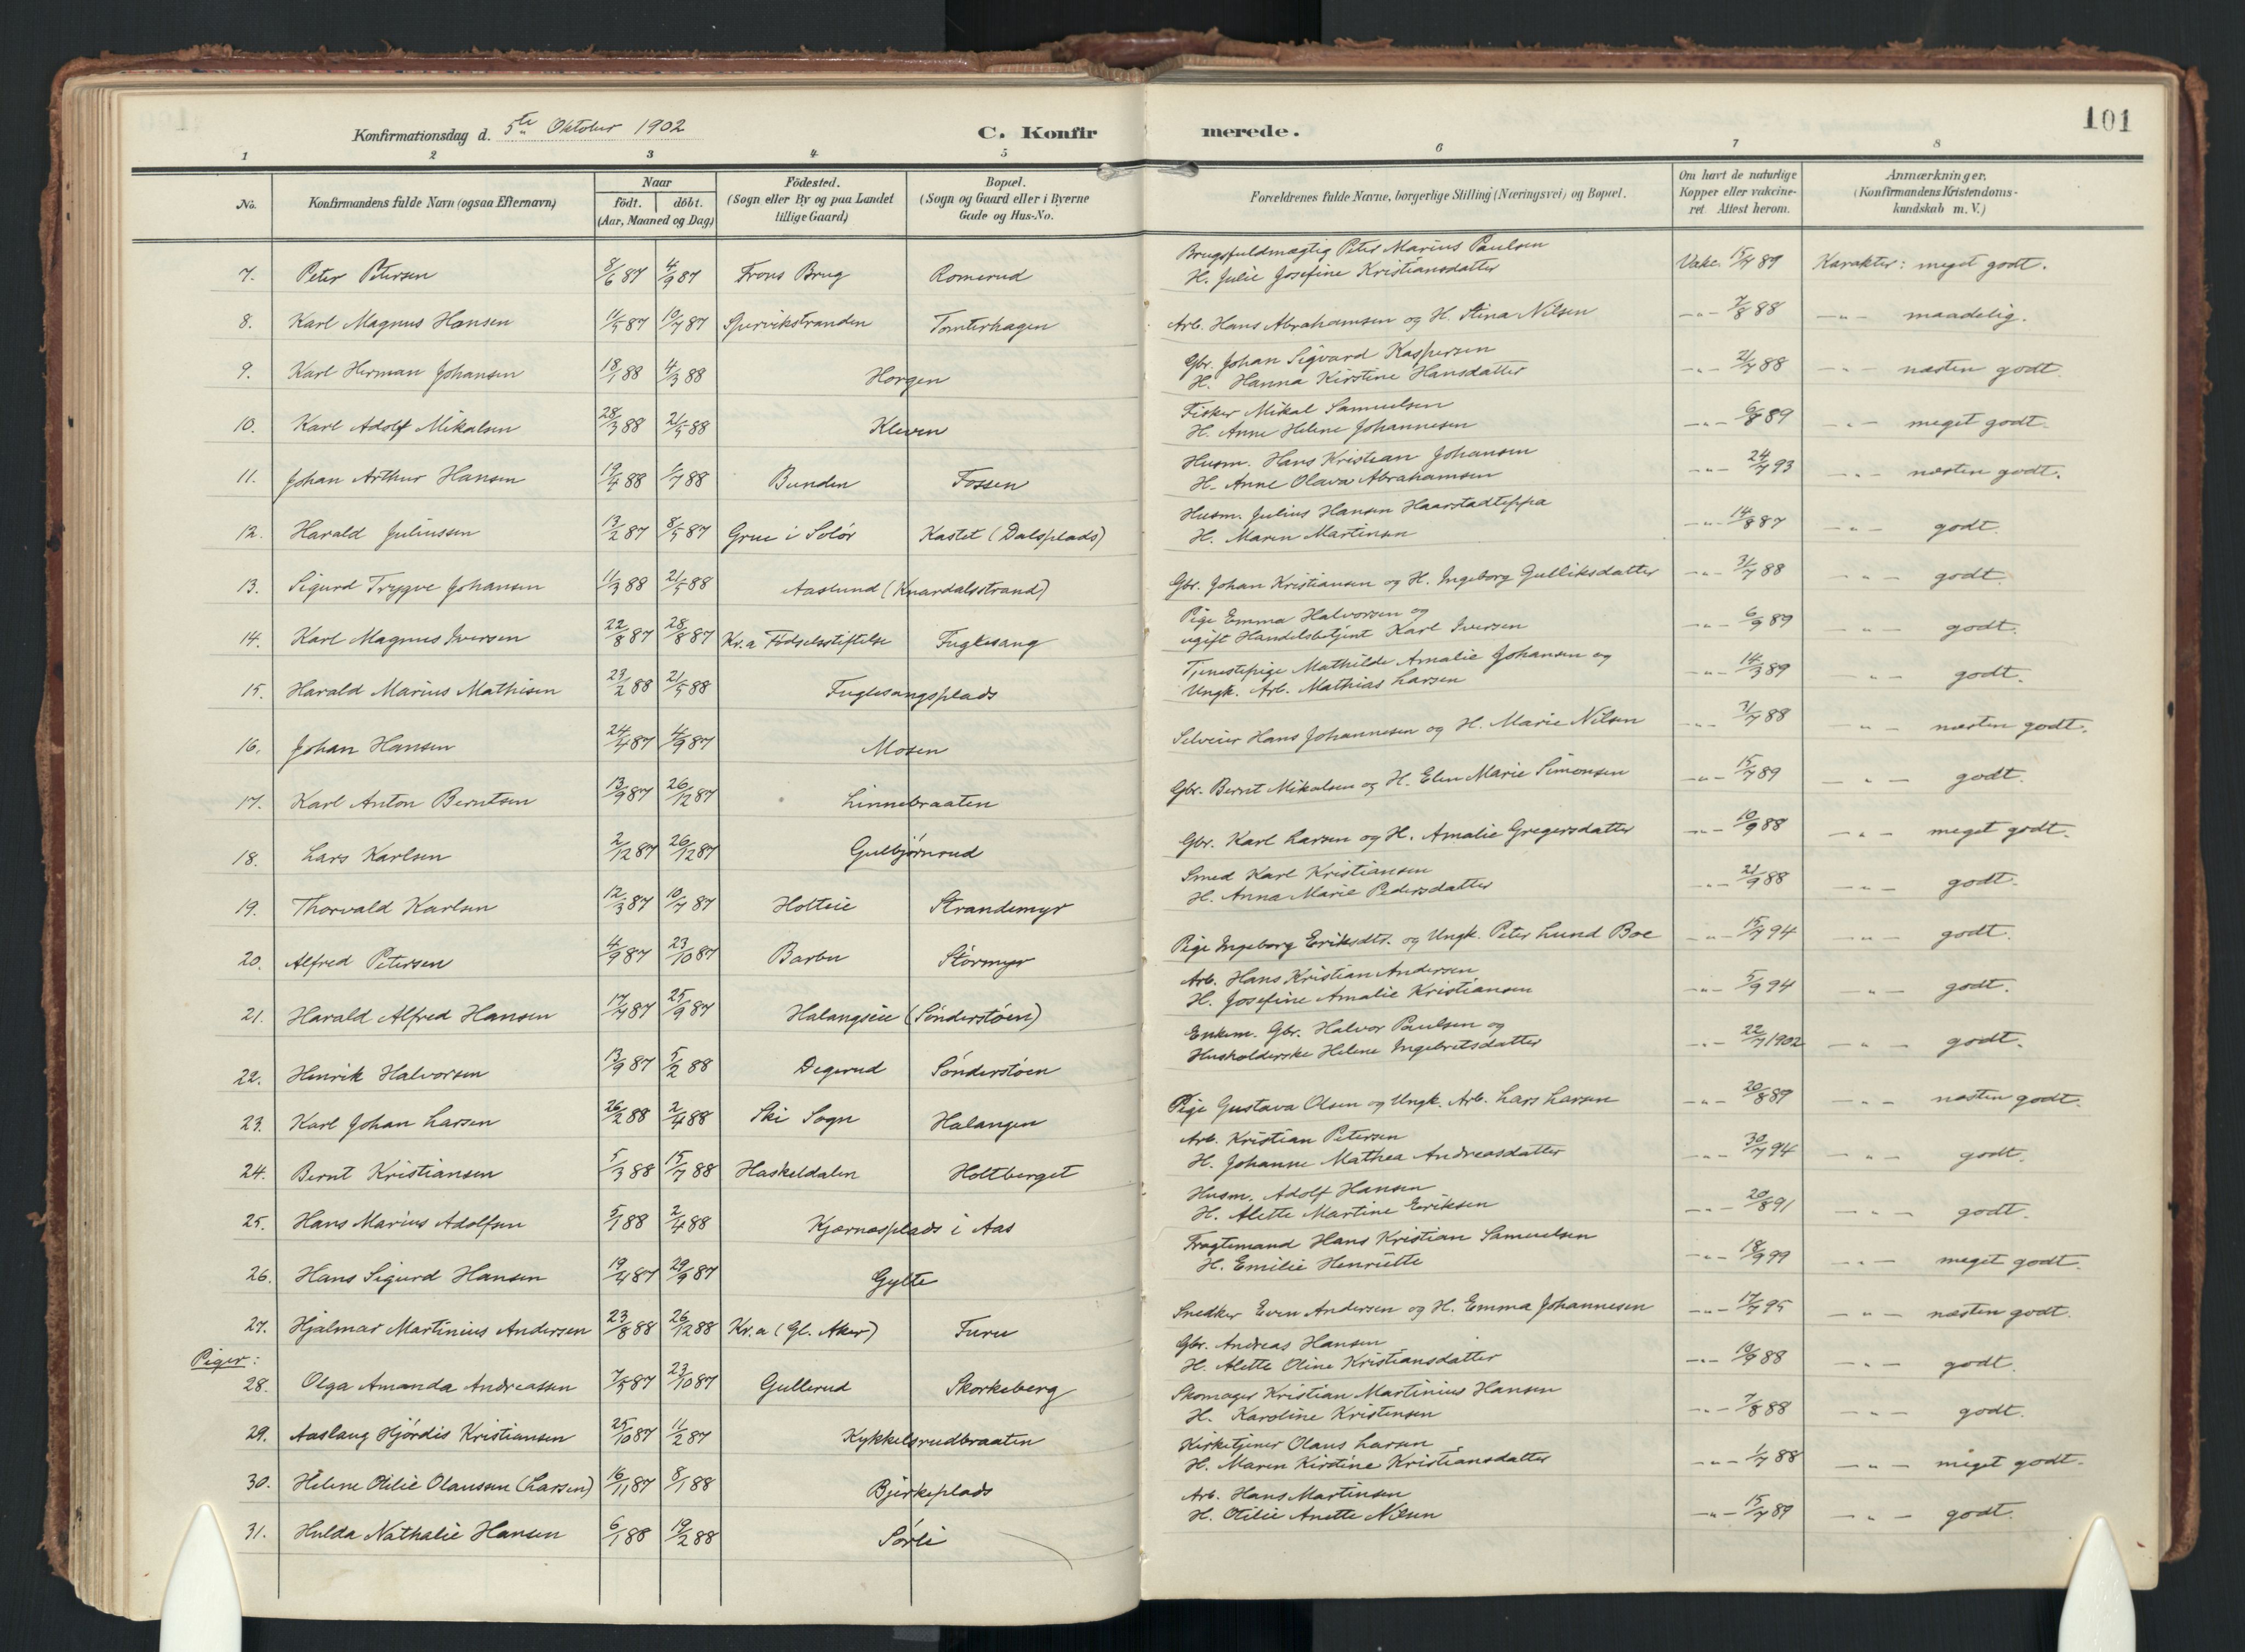 101
Konfirmationsdag d. 5te Oktober 1902 C. Konfirmerede.
1 2 3 4 5 6 7 8
No. Konfirmandens fulde Navn (ogsaa Efternavn) Naar födt. döbt. (Aar, Maaned og Dag) Födested. (Sogn eller By og paa Landet tillige Gaard) Bopæl. (Sogn og Gaard eller i Byerne Gade og Hus-No. Forældrenes fulde Navne, borgerlige Stilling (Næringsvei) og Bopæl. Om havt de naturlige Kopper eller vakcineret Attest herom. Anmærkninger. (Konfirmandens Kristendomskundskab m.V.)
7. Peter Petersen 8/6 87 4/9 87 Frons Brug Romerud Brugsfuldmægtig Peter Marius Paulsen H. Julie Josefine Kristiansdatter Vakc. 15/7 89 Karakter: meget godt.
8. Karl Magnus Hansen 11/5 87 10/7 87 Spirvikstranden Tomterhagen Arb. Hans Abrahamsen og H. Stina Nilsen -"- 7/8 88 -"- maadelig.
9. Karl Herman Johansen 18/1 88 4/3 88 Horgen Gbr. Johan Sigvard Kaspersen H. Hanna Kirstine Hansdatter -"- 21/7 88 -"- næsten godt.
10. Karl Adolf Mikalsen 28/3 88 21/5 88 Kleven Fisker Mikal Samuelsen H. Anne Helene Johannesen -"- 6/8 89 -"- meget godt.
11. Johan Arthur Hansen 19/4 88 1/7 88 Bunden Fossen Husm. Hans Kristian Johansen H. Anne Olava Abrahamsen -"- 24/7 93 -"- næsten godt.
12. Harald Juliussen 13/2 87 8/5 87 Grue i Solör Kastet (Dalsplads) Husm. Julius Hansen Haarstadteppa H. Maren Martinsen -"- 14/8 87 -"- godt.
13. Sigurd Trygve Johansen 11/3 88 21/5 88 Aaslund (Knardalsstrand) Gbr. Johan Kristiansen og H. Ingeborg Gulliksdatter -"- 31/7 88 -"- godt.
14. Karl Magnus Iversen 22/8 87 28/8 87 Kr.a Födselsstiftelse Fuglesang Pige Emma Halvorsen og ugift Handelsbetjent Karl Iversen -"- 6/9 89 -"- godt.
15. Harald Marius Mathisen 23/2 88 21/5 88 Fuglesangsplads Tjenestepige Mathilde Amalie Johansen og Ungk. Arb. Mathias Larsen -"- 14/3 89 -"- godt.
16. Johan Hansen 24/4 87 4/9 87 Mosen Selveier Hans Johannesen og H. Marie Nilsen -"- 31/7 88 -"- næsten godt.
17. Karl Anton Berntsen 13/9 87 26/12 87 Linnebraaten Gbr. Bernt Mikalsen og H. Elen Marie Simonsen -"- 15/7 89 -"- godt.
18. Lars Karlsen 2/12 87 26/12 87 Gulbjörnrud Gbr. Karl Larsen og H. Amalie Gregersdatter -"- 10/9 88 -"- meget godt.
19. Thorvald Karlsen 12/3 87 10/7 87 Holteie Strandemyr Smed Karl Kristiansen H. Anna Marie Pedersdatter -"- 21/9 88 -"- godt.
20. Alfred Petersen 4/9 87 23/10 87 Barbu Störmyr Pige Ingeborg Eriksdtr. og Ungk. Peter Lund Boe -"- 15/7 94 -"- godt.
21. Harald Alfred Hansen 17/7 87 25/9 87 Halangseie (Sönderstöen) Arb. Hans Kristian Andersen H. Josefine Amalie Kristiansen -"- 5/9 94 -"- godt.
22. Henrik Halvorsen 13/9 87 5/2 88 Degerud Sönderstöen Enkem. Gbr. Halvor Paulsen og Husholderske Helene Ingebretsdatter -"- 22/7 1902 -"- godt.
23. Karl Johan Larsen 26/2 88 2/4 88 Ski Sogn Halangen Pige Gustava Olsen og Ungk. Arb. Lars Larsen -"- 20/8 89 -"- næsten godt.
24. Bernt Kristiansen 5/3 88 15/7 88 Haskeldalen Holtberget Arb. Kristian Petersen H. Johanne Mathea Andreasdatter -"- 30/7 94 -"- godt.
25. Hans Marius Adolfsen 5/1 88 2/4 88 Kjærnæsplads i Aas Husm. Adolf Hansen H. Alette Martine Eriksen -"- 20/8 91 -"- godt.
26. Hans Sigurd Hansen 19/4 87 29/9 87 Gylte Fragtemand Hans Kristian Samuelsen H. Emilie Henriette -"- 18/9 99 -"- meget godt.
27. Hjalmar Martinius Andersen 23/8 88 26/12 88 Kr.a (Gl. Aker) Furu Snedker Even Andersen og H. Emma Johannesen -"- 17/7 95 -"- næsten godt.
Piger:
28. Olga Amanda Andreassen 7/5 87 23/10 87 Gullerud Skorkeberg Gbr. Andreas Hansen H. Alette Oline Kristiansdatter -"- 10/9 88 -"- godt.
29. Aaslaug Hjördis Kristiansen 25/10 87 11/2 87 Kykkelsrudbraaten Skomager Kristian Martinius Hansen H. Karoline Kristensen -"- 7/8 88 -"- godt.
30. Helene Otilie Olaussen (Larsen) 16/11 87 8/1 88 Bjerkeplads Kirketjener Olaus Larsen H. Maren Kirstine Kristiansdatter -"- 1/7 88 -"- meget godt.
31. Hulda Nathalie Hansen 6/1 88 19/2 88 Sörli Arb. Hans Martinsen H. Otilie Anette Nilsen -"- 15/7 89 -"- godt.